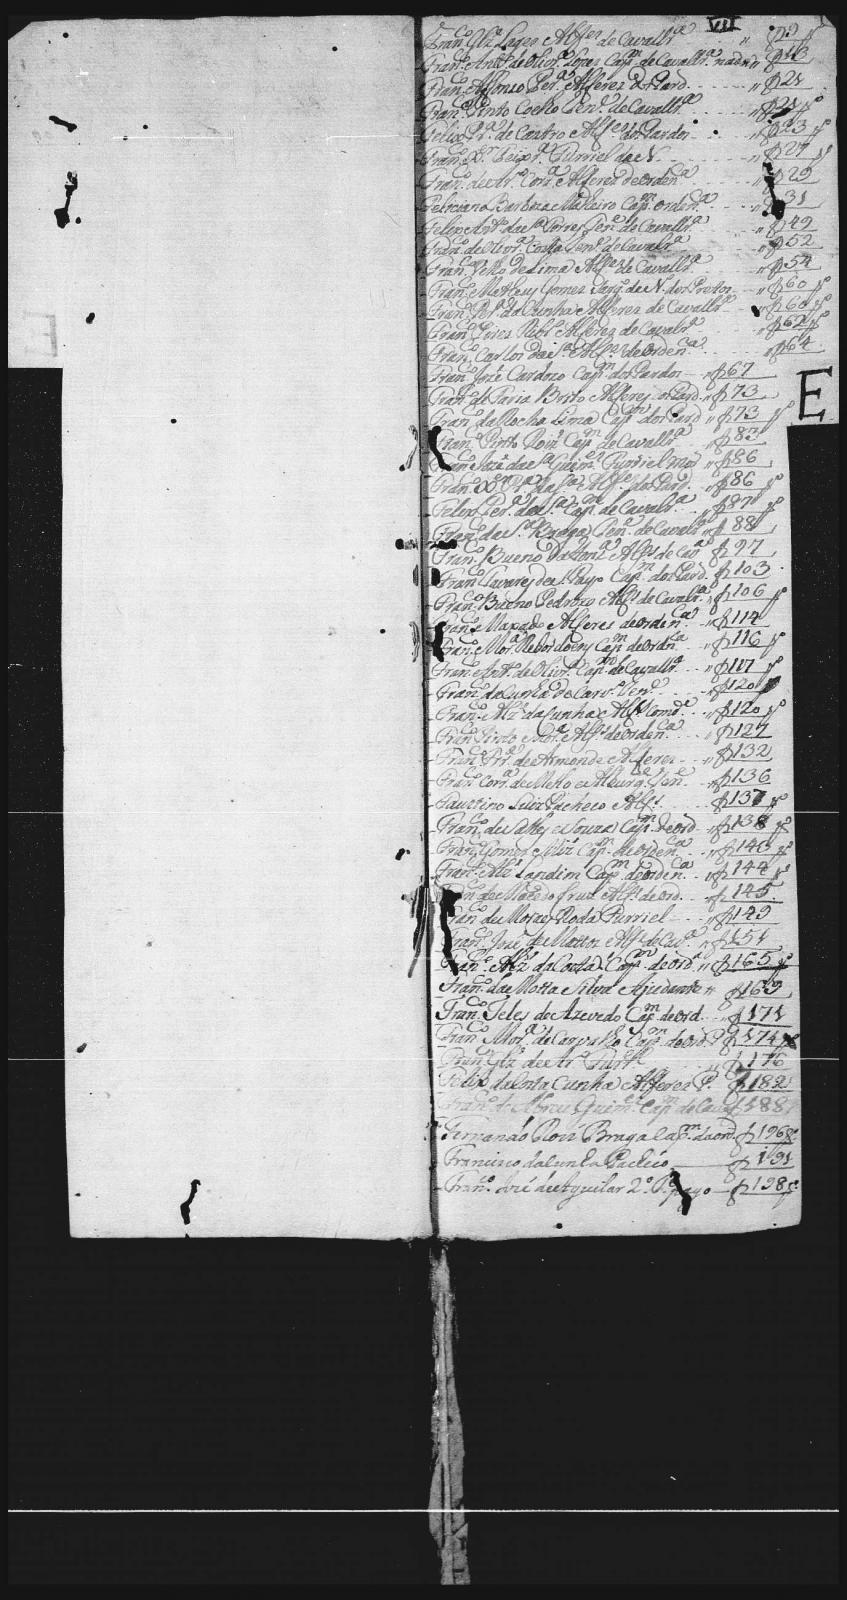 VII
Fran.co Glz' Lages Alf.es de Cavall.a f 9
Fran.co Ant.o de Oliv.a Lopes Cap.m de Cavall.a f 16
Fran.co Affonso Per.a Alferes d Pard f 21
Fran.co Pinto Coelho Ten.e de Cavall.a f 21
Felix Pr.a de Castro Alf.es dos Pardos f 23
Fran.co X.er Teix.a Furriel de N. f 27
Fran.co de Ar.o Corr.a Alferes de orden.ca f 29
Feliciano Barboza Madeiro Cap.m orden.ca f 31
Felix Ant.o da S.a Torres Ten.e de Cavall.a f 49
Fran.co de Oliv.a Costa Ten.e de Cavalr.a f 52
Fran.co Vello de Lima Alf.es de Cavall.a f 54
Fran.co Matheus Gomes Sarg.to de N. dos Pretos f 60
Fran.co Per.a da Cunha Alferes de Cavall.a f 60
Fran.co Pires Rib.o Alferes de Cavalr.a f 62
Fran.co Carlos da S.a Alf.es de orden.ca f 64
Fran.co José Cardozo Cap.m dos Pardos f 67
E
Fran.co de Faria Brito Alferes os Pard f 73
Fran.co da Rocha Lima Cap.m dos Pard f 73
Fran.co Pinto Roiz' Cap.m de Cavall.a f 83
Fran.co José da S.a Guim.es Furriel f 86
Fran.co X.er da S.a Alf.es dos Pard. f 86
Felex Per.a da S.a Cap.m de Cavalr.a f 87
Fran.co da S.a Braga Ten.e de Cavalr.a f 88
Fran.co Bueno da Alf.s de Cav.a f 97
Fran.co Tavares de Cap.m dos Pard. f 103
Fran.co Bueno Pedrozo Alf.s de Cavalr.a f 106
Fran.co Maxado Alferes de orden.ca f 114
Fran.co Mor.a Rebordoens Cap.m de Ordn.ca f 116
Fran.co Ant.o de Oliv.a Cap.m de Cavall.a f 117
Fran.co da Cunha de Carv.o Ten.e f 120
Fran.co Alz' da Cunha Alf.s Comd.e f 120
Fran.co Pinto Alf.s de Orden.ca f 127
Fran.co Prr.a de Almonda Alferes f 132
Fran.co Corr.a de Mello e Alburq.e Ten.e f 136
Faustino Luiz Pacheco Alf.s f 137
Fran.co de Salles e Souza Cap.m de ord f 138
Fran.co Gomes Miz' Cap.m de orden.ca f 140
Fran.co Alz' Landim Cap.m de orden.ca f 144
Fran.co de Macedo Cruz Alf.s de ord. f 145
Fran.co de Moraes Roda Furriel f 149
Fran.co José de Mattos Alf.s de Cav.a f 151
Fran.co Alz' da Costa Cap.m de ord.a f 165
Fran.co da Motta e Silva Ajudante f 163
Fran.co Teles de Azevedo Cap.m de ord. f 171
Fran.co Mor.a de Carvalho Cap.m de ord. P. f 174
Fran.co Glz' de Ar.o Furr.el f 176
Felix da Costa Cunha Alferes P. f 182
Fran.co de Abreu Guim.es Cap.m de Cava f 188
Fernando Roiz Braga Cap.m da ord. f 196
Francisco da Cunha Pacheco f 191
Fran.co José de Aguilar 2.o P. pago f 198